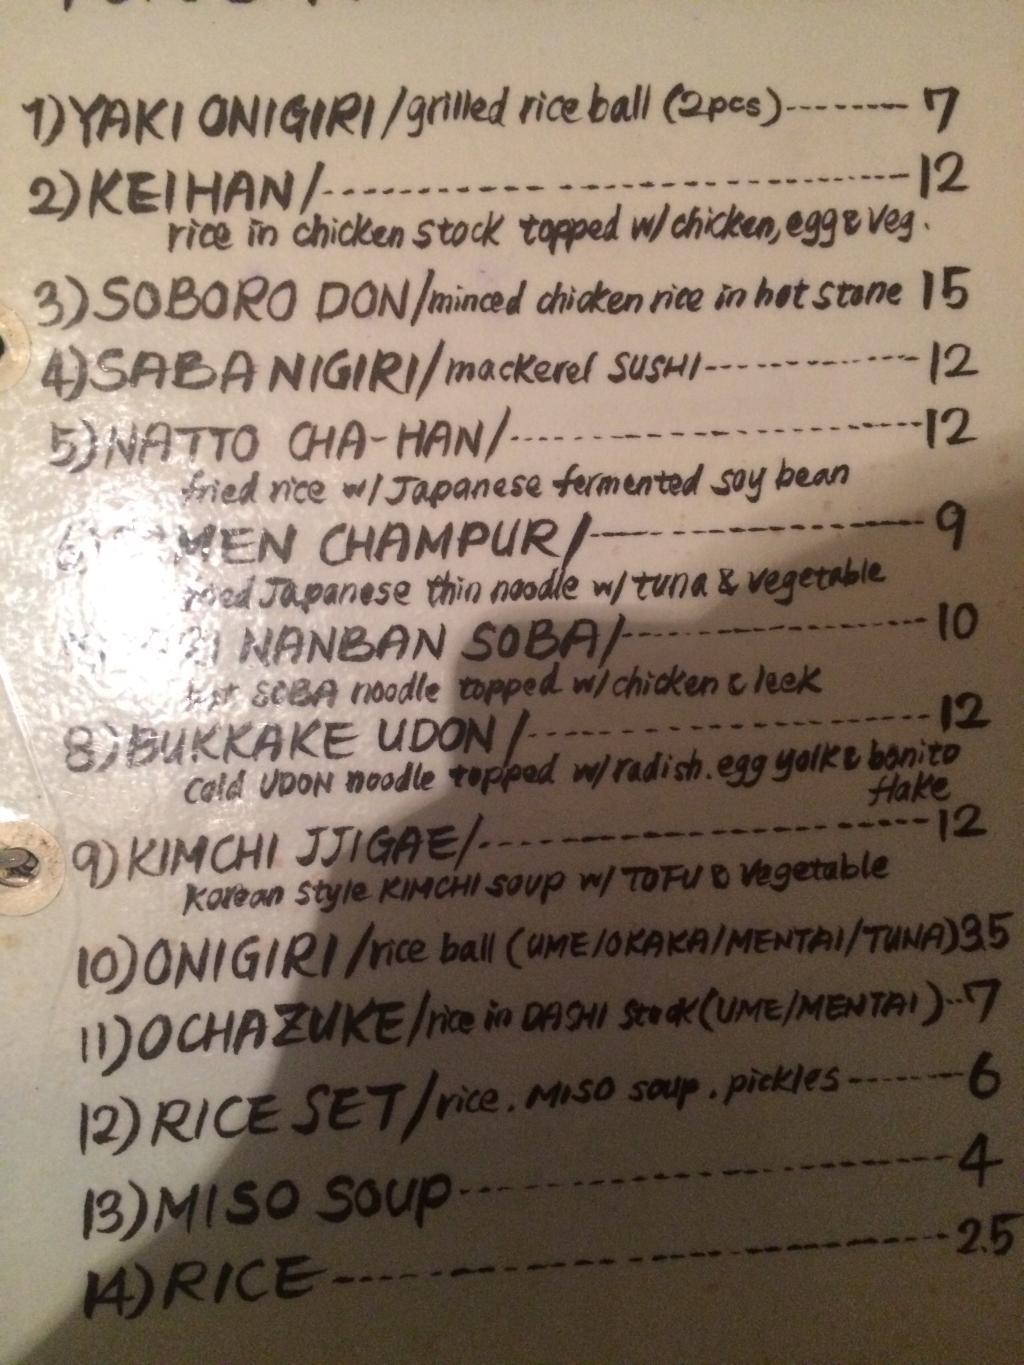 1) YAKI ONIGIRI/grilled rice ball (2pcs)-------- 7
2) KEIHAN/------------------------ 12
rice in chicken stock topped w/ chicken, egg & veg.
3) SOBORO DON/minced chicken rice in hot stone 15
4) SABA NIGIRI/mackerel SUSHI------------ 12
5) NATTO CHA-HAN/------------------ 12
fried rice w/ Japanese fermented soy bean
MEN CHAMPUR/------------------ 9
Japanese thin noodle w/ tuna & vegetable
NANBAN SOBA/------------------ 10
SOBA noodle topped w/ chicken & leek
8) BUKKAKE UDON/------------------ 12
cold UDON noodle topped w/ radish. egg yolk & bonito
flake
9) KIMCHI JJIGAE/------------------ 12
Korean style KIMCHI soup w/ TOFU & vegetable
10) ONIGIRI/rice ball (UME/OKAKA/MENTAI/TUNA) 3.5
11) OCHAZUKE/rice in DASHI stock (UME/MENTAI)--7
12) RICE SET/rice. MISO soup. pickles------- 6
13) MISO SOUP------------------ 4
14) RICE------------------------ 2.5